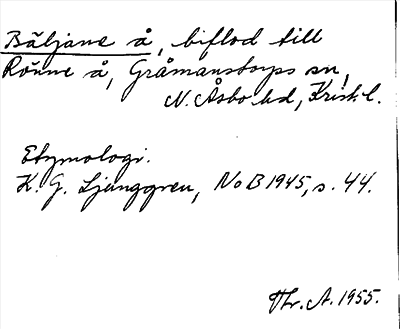 Bäljane å, biflod till
Rönne å, Gråmanstorps sn,
N. Åsbo hd, Krist. l.
Etymologi.
K. G. Ljunggren, NoB 1945, s. 44.
Thr. A. 1955.